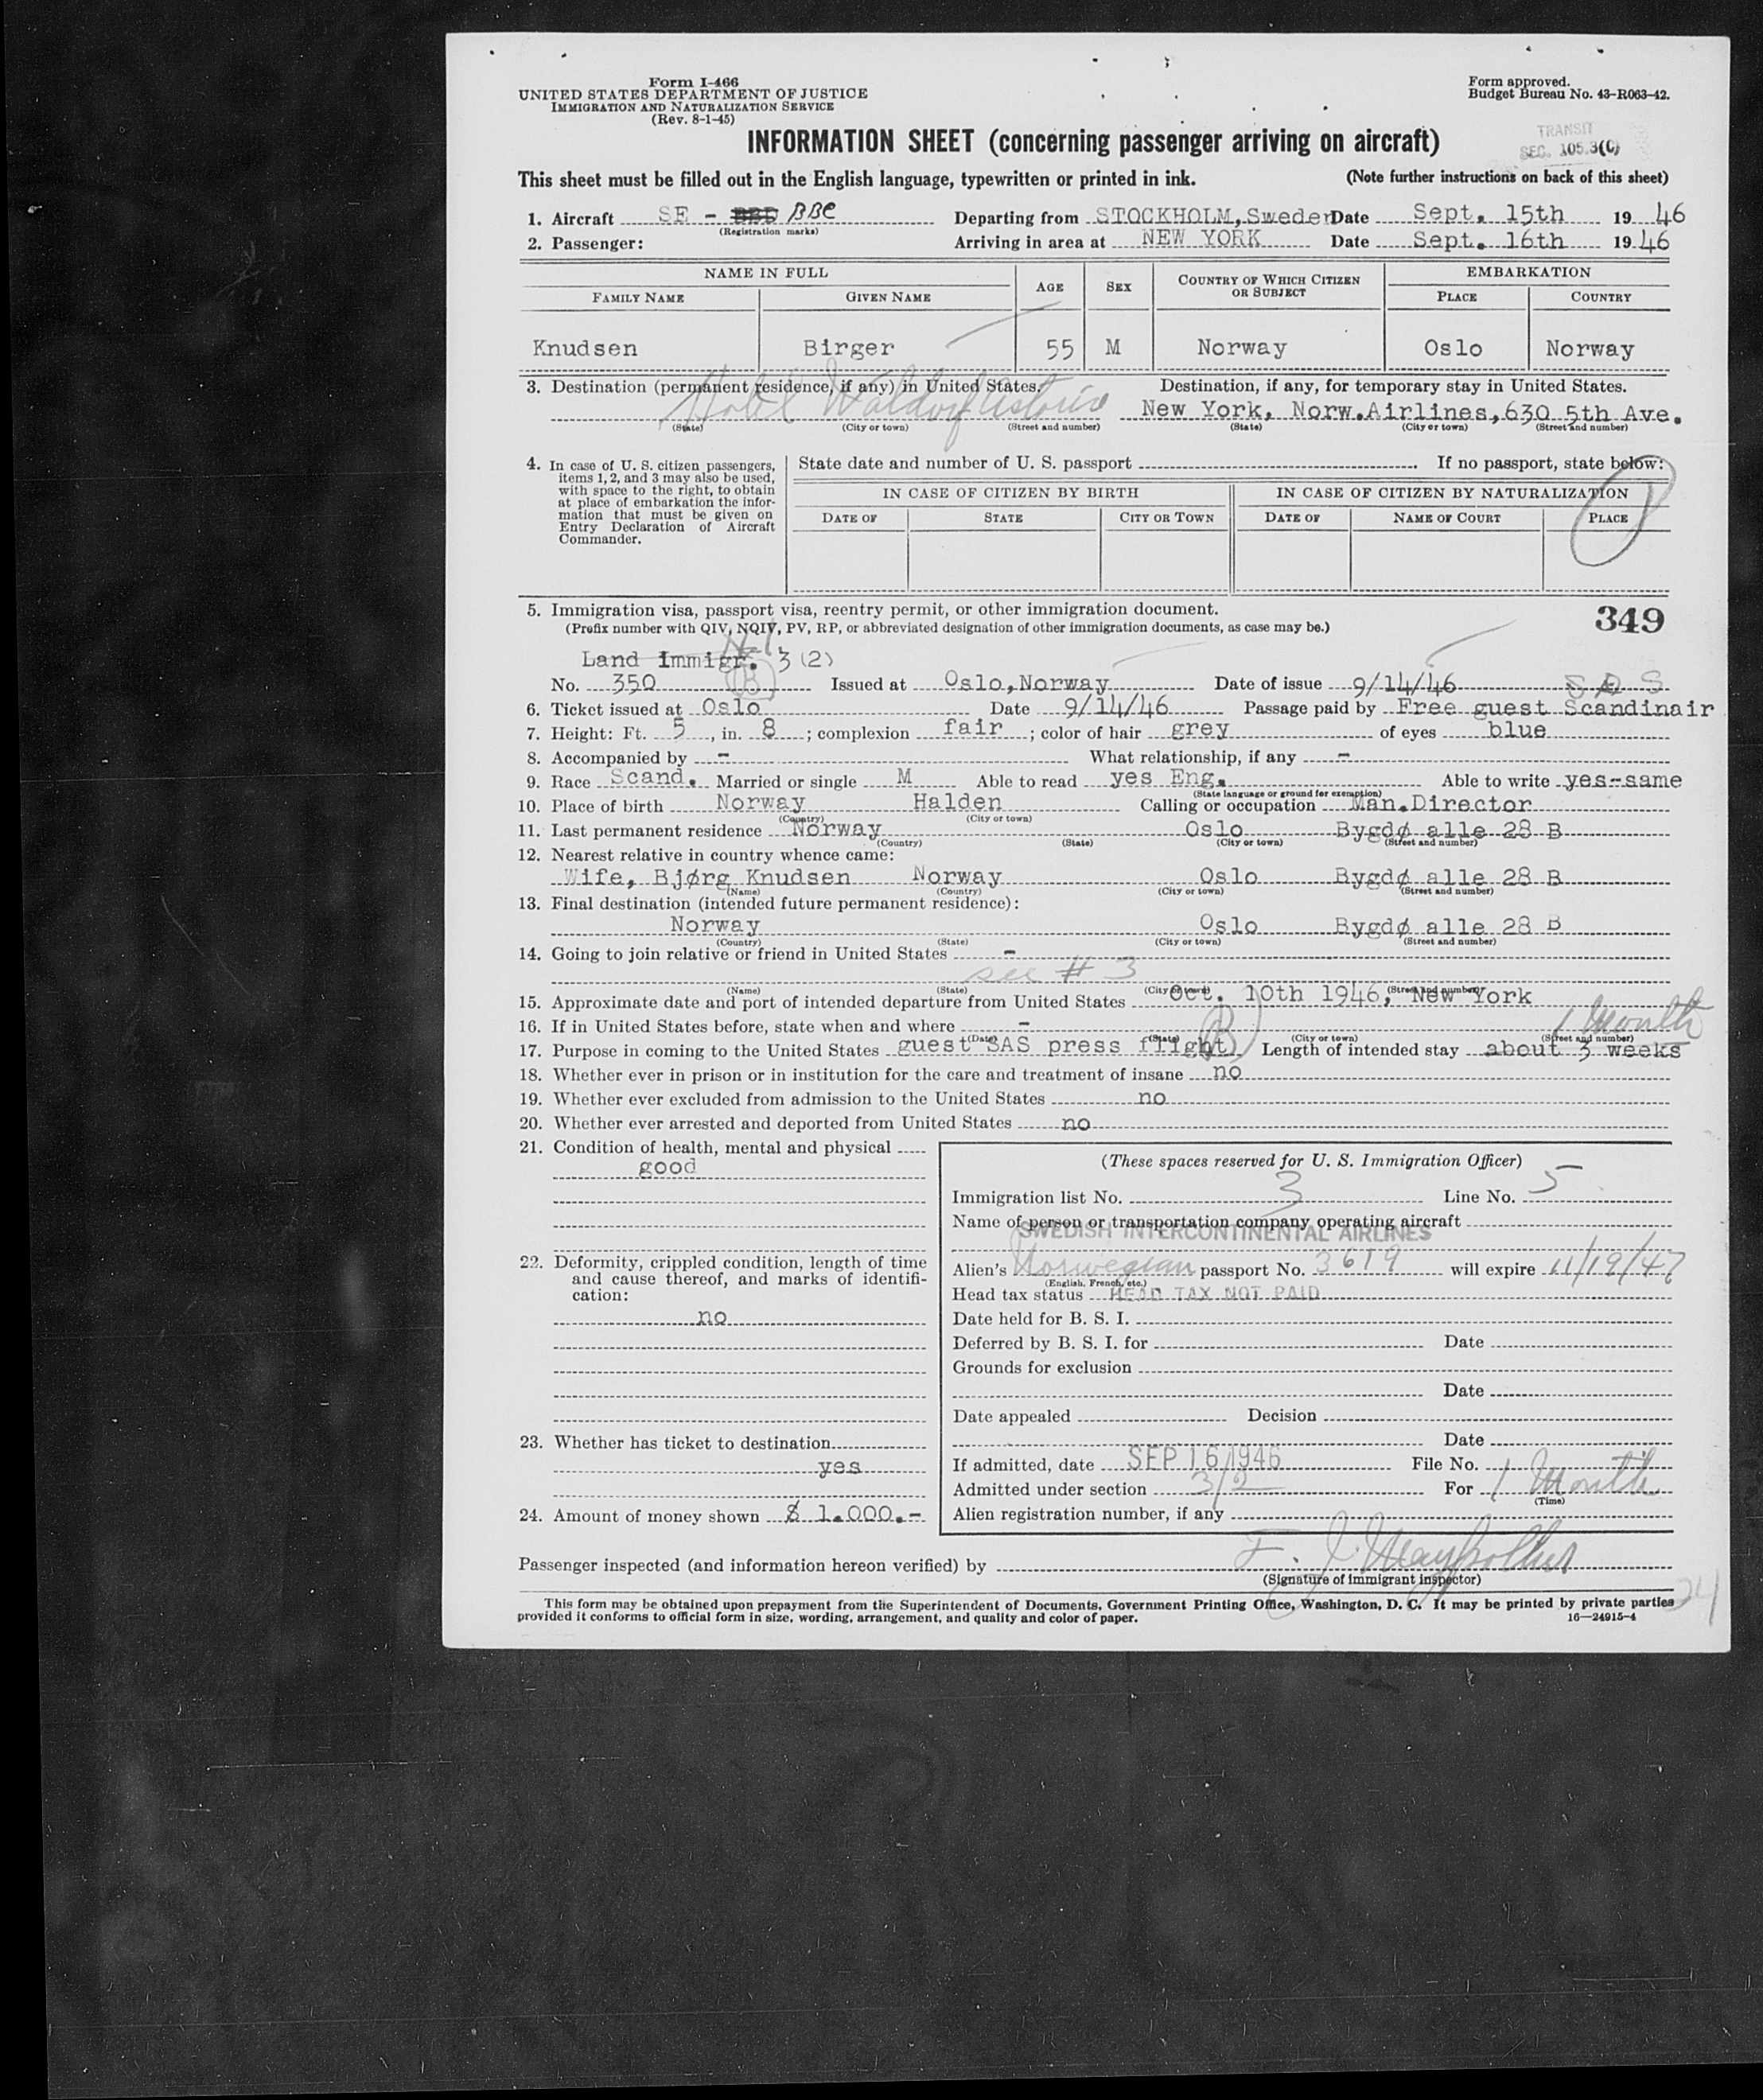 Form I-466
UNITED STATES DEPARTMENT OF JUSTICE
IMMIGRATION AND NATURALIZATION SERVICE
(Rev. 8-1-45)
Form approved.
Budget Bureau No. 43-R063-42.
INFORMATION SHEET (concerning passenger arriving on aircraft)
TRANSIT
SEC. 105.3(C)
This sheet must be filled out in the English language, typewritten or printed in ink. (Note further instructions on back of this sheet)
1. Aircraft SE - BBC Departing from STOCKHOLM, Sweden Date Sept. 15th 19 46
(Registration marks)
2. Passenger: Arriving in area at NEW YORK Date Sept. 16th 19 46
NAME IN FULL AGE SEX COUNTRY OF WHICH CITIZEN OR SUBJECT EMBARKATION
FAMILY NAME GIVEN NAME PLACE COUNTRY
Knudsen Birger 55 M Norway Oslo Norway
3. Destination (permanent residence, if any) in United States. Destination, if any, for temporary stay in United States.
Hotel Waldorf Astoria New York, Norw.Airlines,630 5th Ave.
(State) (City or town) (Street and number) (State) (City or town) (Street and number)
4. In case of U. S. citizen passengers, items 1, 2, and 3 may also be used, with space to the right, to obtain at place of embarkation the information that must be given on Entry Declaration of Aircraft Commander.
State date and number of U. S. passport If no passport, state below:
IN CASE OF CITIZEN BY BIRTH IN CASE OF CITIZEN BY NATURALIZATION
DATE OF STATE CITY OR TOWN DATE OF NAME OF COURT PLACE
5. Immigration visa, passport visa, reentry permit, or other immigration document. 349
(Prefix number with QIV, NQIV, PV, RP, or abbreviated designation of other immigration documents, as case may be.)
Land immigr. 3 (2)
No. 350 (B) Issued at Oslo, Norway Date of issue 9/14/46
6. Ticket issued at Oslo Date 9/14/46 Passage paid by Free guest Scandinair
7. Height: Ft. 5, in. 8; complexion fair; color of hair grey of eyes blue
8. Accompanied by - What relationship, if any -
9. Race Scand. Married or single M Able to read yes Eng. Able to write yes-same
(State language or ground for exemption)
10. Place of birth Norway Halden Calling or occupation Man.Director
(Country) (City or town)
11. Last permanent residence Norway Oslo Bygdø alle 28 B
(Country) (State) (City or town) (Street and number)
12. Nearest relative in country whence came:
Wife, Bjørg Knudsen Norway Oslo Bygdø alle 28 B
(Name) (Country) (City or town) (Street and number)
13. Final destination (intended future permanent residence):
Norway Oslo Bygdø alle 28 B
(Country) (State) (City or town) (Street and number)
14. Going to join relative or friend in United States -
see # 3
(Name) (State) (City or town) (Street and number)
15. Approximate date and port of intended departure from United States Oct. 10th 1946, New York
16. If in United States before, state when and where - 1 Month
(Date) (State) (City or town) (Street and number)
17. Purpose in coming to the United States guest SAS press flight Length of intended stay about 3 weeks
18. Whether ever in prison or in institution for the care and treatment of insane no
19. Whether ever excluded from admission to the United States no
20. Whether ever arrested and deported from United States no
21. Condition of health, mental and physical
good
22. Deformity, crippled condition, length of time and cause thereof, and marks of identification:
no
23. Whether has ticket to destination
yes
24. Amount of money shown $ 1.000.-
(These spaces reserved for U. S. Immigration Officer)
Immigration list No. 3 Line No. 5
Name of person or transportation company operating aircraft
SWEDISH INTERCONTINENTAL AIRLINES
Alien's Norwegian passport No. 3619 will expire 11/19/47
(English, French, etc.)
Head tax status HEAD TAX NOT PAID
Date held for B. S. I.
Deferred by B. S. I. for Date
Grounds for exclusion
Date
Date appealed Decision
Date
If admitted, date SEP 16 1946 File No.
Admitted under section 3/2 For 1 Month
(Time)
Alien registration number, if any
Passenger inspected (and information hereon verified) by
(Signature of immigrant inspector)
This form may be obtained upon prepayment from the Superintendent of Documents, Government Printing Office, Washington, D. C. It may be printed by private parties
provided it conforms to official form in size, wording, arrangement, and quality and color of paper. 16—24915-4
24